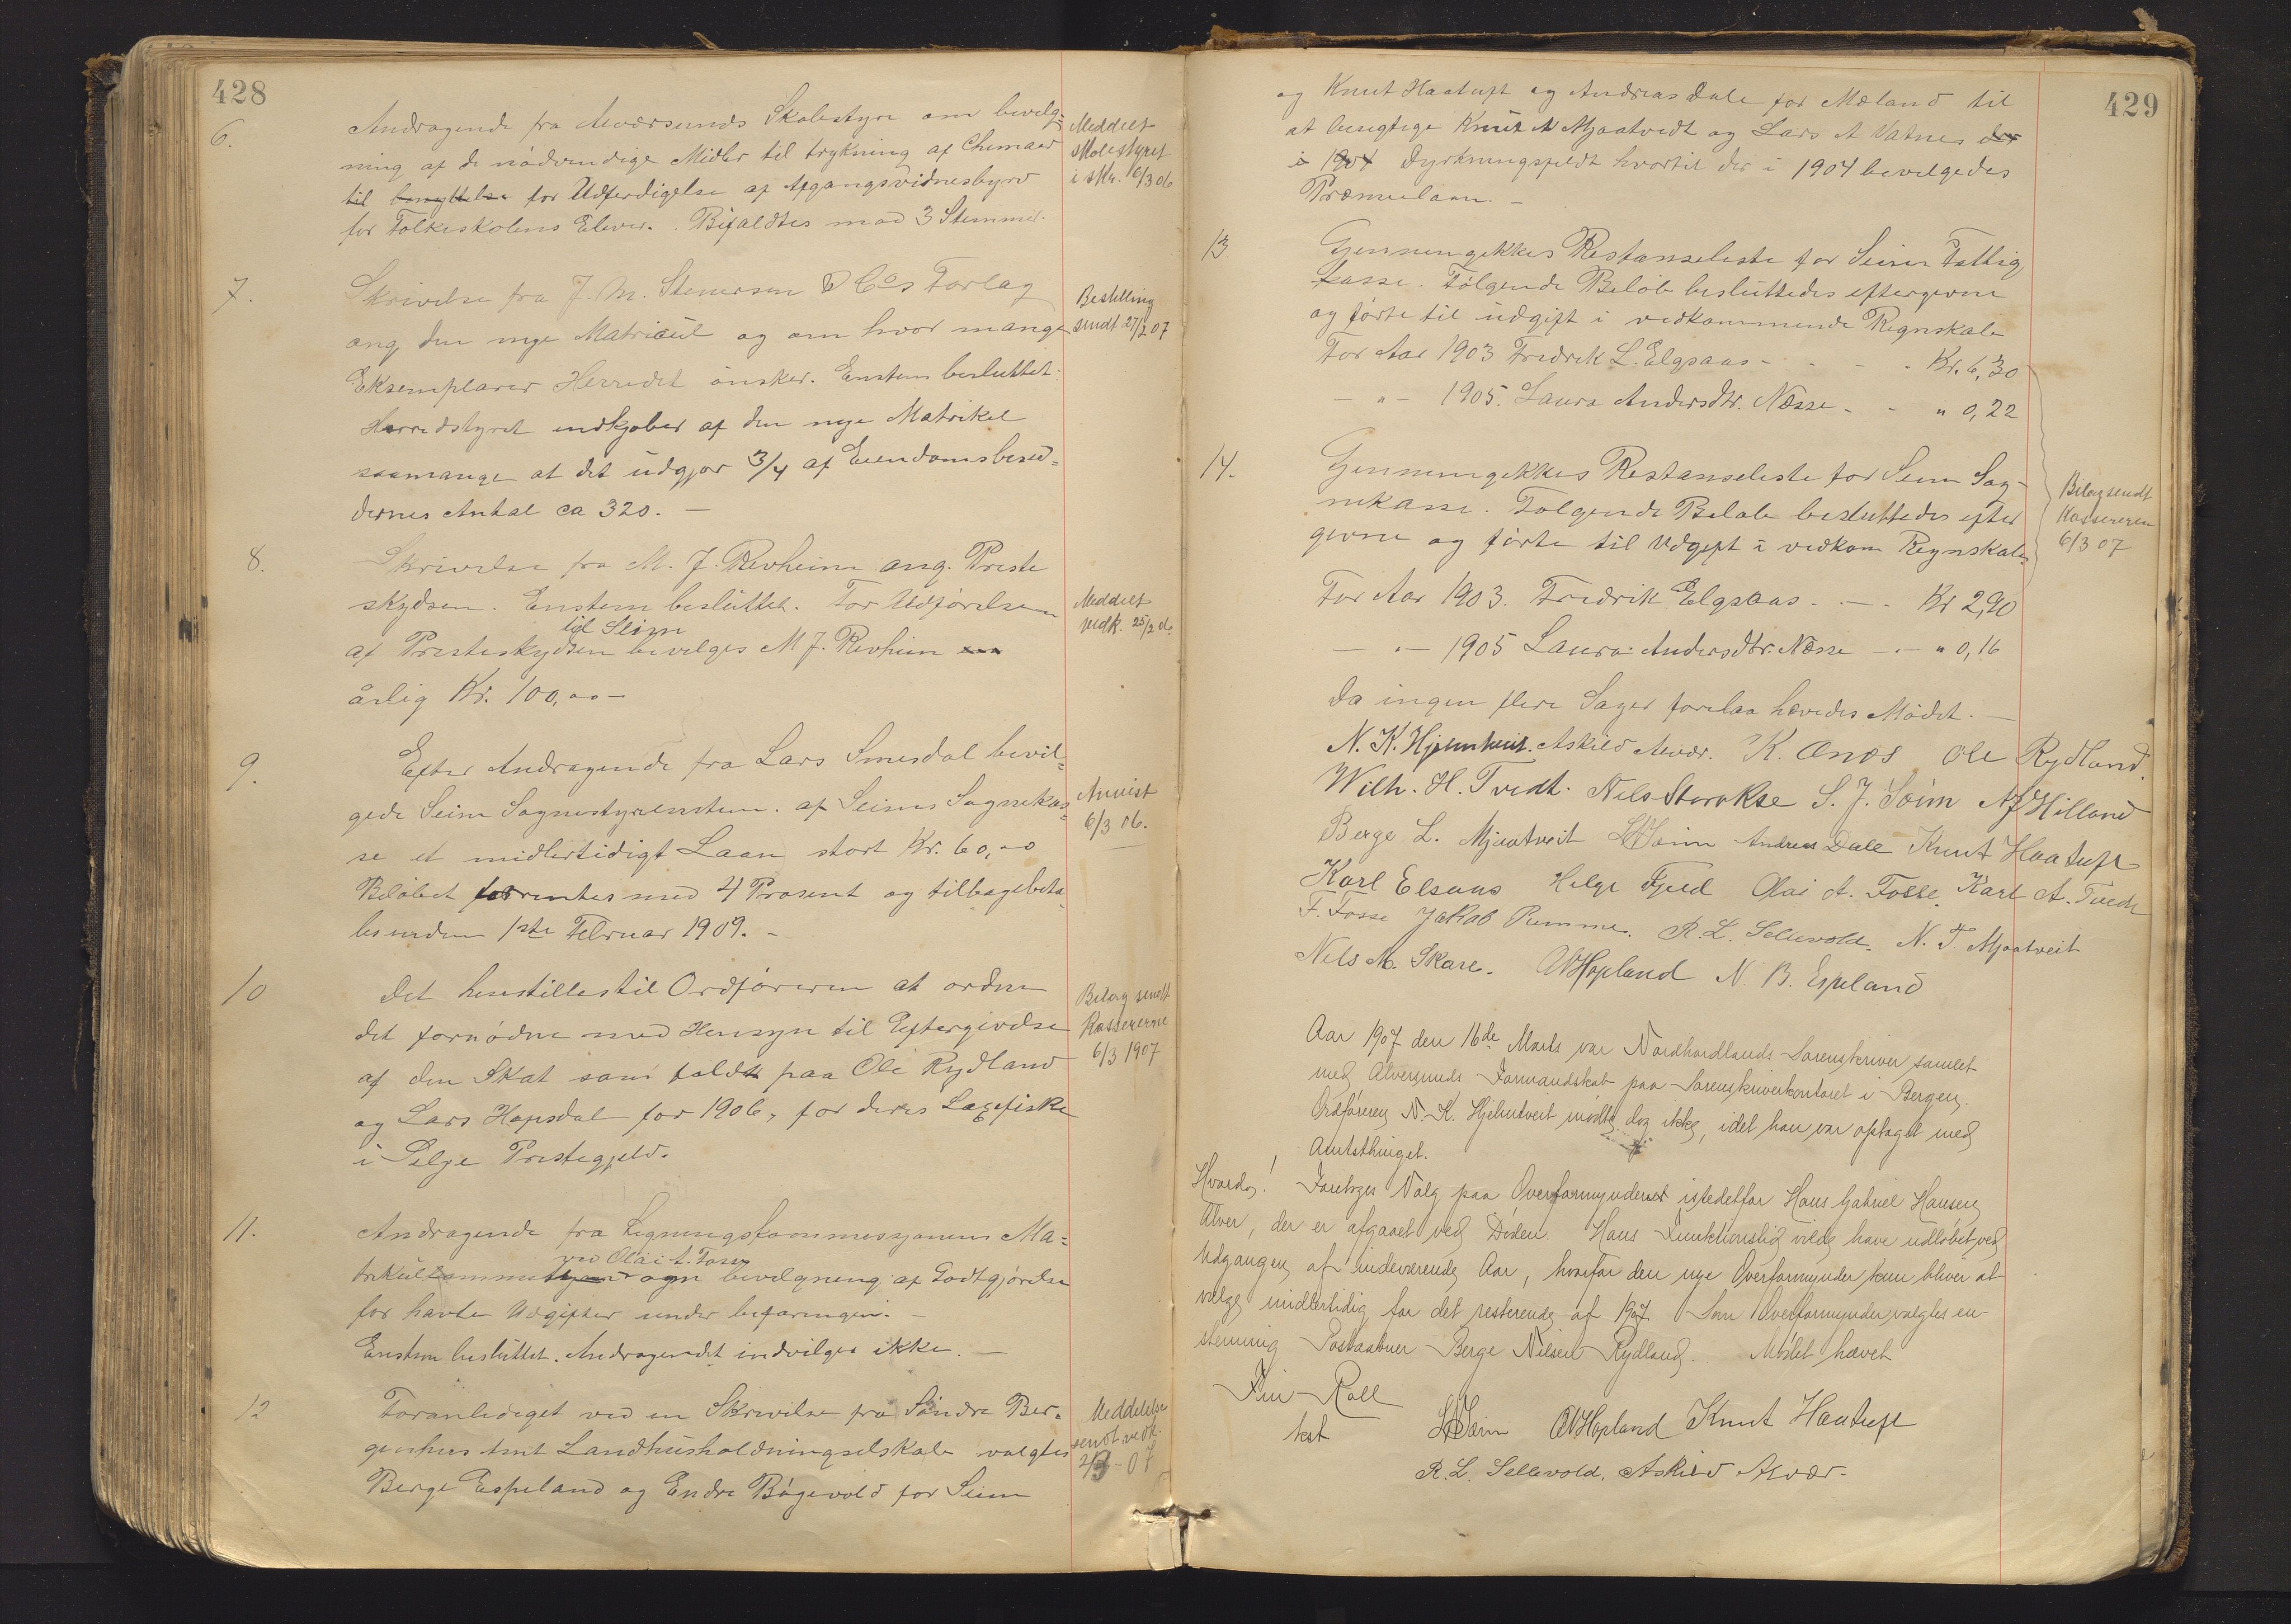 428
6.
Andragende fra Alværsunds Skolestyre om bevilg-
ning af de nödvendige Midler til trykning af Chemaer
til benyttelse for Udferdigelse af Afgangsvidnesbyrd
for Folkeskolens Elever. Bifaldtes mod 3 Stemmer.
Meddelt
skolestyret
i skr. 6/3 06
7.
Skrivelse fra J. M. Stenersen & Co's Forlag
ang. den nye Matricul og om hvor mange
Eksemplarer Herredet önsker. Enstem besluttet.
Herredstyret indkjøber af den nye Matrikel
saamange at det udgjør 3/4 af Eiendomsbesid=
dernes Antal ca 320. —
Bestilling
sendt 27/2 07
8.
Skrivelse fra M. J. Revheim ang. Preste
skydsen. Enstem besluttet. For Udförelsen
til Seim
af Presteskydsen bevilges M J. Revheim
årlig Kr. 100,00 —
Meddelt
vedk. 25/2 06
9.
Efter Andragende fra Lars Smesdal bevil=
gede Seim Sognestyre enstem. af Seims Sognekas=
se et midlertidigt Laan stort Kr. 60,00
Beløbet forrentes med 4 Prosent og tilbagebeta
les inden 1ste Februar 1909. —
Anvist
6/3 06.
10
Det henstilles til Ordföreren at ordne
det fornödne med Hensyn til Eftergivelse
af den Skat som faldt paa Ole Rydland
og Lars Hopsdal for 1906, for deres Laxefiske
i Selje Prestegjeld.
Bilag sendt
Kassererne
6/3 1907
11.
Andragende fra Ligningskommissjonens Ma=
ved Olai A. Fosse
trikulkommissjon om bevilgning af Godtgjörelse
for havte Udgifter under befaringen. —
Enstem besluttet. Andragendet indvilges ikke. —
12
Foranlediget ved en Skrivelse fra Söndre Ber=
genhus Amt Landhusholdningselskab valgtes
Berge Espeland og Endre Bögevold for Seim
Meddelelse
sendt vedk.
2/3 - 07
429
og Knut Haatuft og Andreas Dale for Mæland til
at besigtige Knut N Mjaatvedt og Lars A Vatnes der
i 1904 Dyrkningsfeldt hvortil der i 1904 bevilgedes
Præmielaan. —
13.
Gjennemgikkes Restanseliste for Seim Fattig
kasse. Fölgende Belöb besluttedes eftergivne
og förte til udgift i vedkommende Regnskab
For Aar 1903 Fredrik L. Elgsaas - - - - Kr. 6,30
— „ — 1905. Laura Andersdtr. Næsse - - „ 0,22
14.
Gjennemgikkes Restanseliste for Seim Sog-
nekasse. Fölgende Belöb besluttedes efter
givne og förte til Udgift i vedkom Regnskab.
For Aar 1903. Fredrik Elgsaas - — - Kr 2,90
— „ — 1905 Laura Andersdtr. Næsse — - — „ 0,16
Bilag sendt
Kassereren
6/3 07
Da ingen flere Sager forelaa hævedes Mödet. —
N. K. Hjelmtveit. Askild Alvær. K. Onæs Ole Rydland.
Wilh. H. Tvedt. Nils Storokse S. J. Soim Hilland
Berge L. Mjaatveit Andreas Dale Knut Haatuft
Karl Elsaas Helge Fjeld Olai A. Fosse. Karl A. Tvedt
F. Fosse Jakob Rumme. R. L. Sellevold. N. T. Mjaatveit
Nils M. Skare. Hopland N. B. Espeland
Aar 1907 den 16de Marts var Nordhordlands Sorenskriver samlet
med Alversunds Formandskab paa Sorenskriverkontoret i Bergen.
Ordføreren N. K. Hjelmtveit mødte dog ikke, idet han var optaget med
Amtsthinget.
Hvorda! Foretoges Valg paa Overformynder istedetfor Hans Gabriel Hansen
Alver, der er afgaaet ved Døden. Hans Funktionstid vilde have udløbet ved
Udgangen af indeværende Aar, hvorfor den nye Overformynder kun bliver at
vælge midlertidig for det resterende af 1907. Som Overformynder valgtes en-
stemmig Postaabner Berge Nilsen Rydland. Mødet hævet
Roll
kst
Hopland Knut Haatuft
R. L. Sellevold. Askild Alvær.